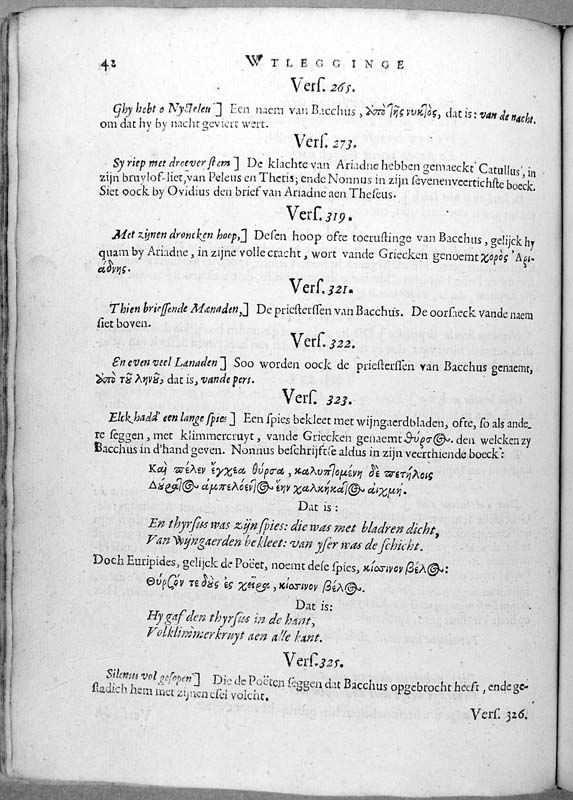 42 WTLEGGINGE
Vers. 265.
Ghy hebt o Nycteleu] Een naem van Bacchus, ἀπὸ τῆς νυκτὸς, dat is: van de nacht,
om dat hy by nacht geviert wert.
Vers. 273.
Sy riep met droever stem] De klachte van Ariadne hebben gemaeckt Catullus, in
zijn bruylof-liet, van Peleus en Thetis; ende Nonnus in zijn sevenenveertichste boeck.
Siet oock by Ovidius den brief van Ariadne aen Theseus.
Vers. 319.
Met zijnen droncken hoop,] Desen hoop ofte toerustinge van Bacchus, gelijck hy
quam by Ariadne, in zijne volle cracht, wort vande Griecken genoemt χορὸς Ἀρι-
άδνης.
Vers. 321.
Thien briessende Manaden,] De priesterssen van Bacchus. De oorsaeck vande naem
siet boven.
Vers. 322.
En even veel Lanaden] Soo worden oock de priesterssen van Bacchus genaemt,
ἀπὸ τοῦ ληνοῦ, dat is, vande pers.
Vers. 323.
Elck hadd' een lange spies] Een spies bekleet met wijngaerdbladen, ofte, so als ande-
re seggen, met klimmercruyt, vande Griecken genaemt θύρσος. den welcken zy
Bacchus in d'hand geven. Nonnus beschrijftse aldus in zijn veerthiende boeck:
Καὶ πέλεν ἔγχεα θύρσα, καλυπτομένη δὲ πετήλοις
Δούρατος ἀμπελόεντος ἔην χαλκήλατος αἰχμή.
Dat is:
En thyrsus was zijn spies: die was met bladren dicht,
Van Wijngaerden bekleet: van yser was de schicht.
Doch Euripides, gelijck de Poët, noemt dese spies, κίσσινον βέλος:
Θύρσόν τε δοὺς ἐς χεῖρα, κίσσινον βέλος.
Dat is:
Hy gaf den thyrsus in de hant,
Vol klimmerkruyt aen alle kant.
Vers. 325.
Silenus vol gesopen] Die de Poëten seggen dat Bacchus opgebrocht heeft, ende ge-
stadich hem met zijnen esel volcht.
Vers. 326.